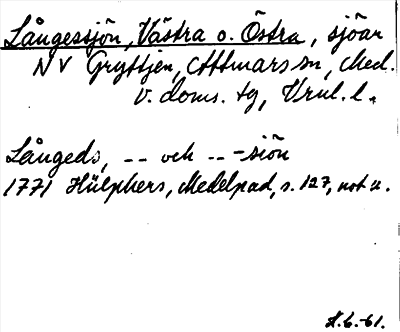 Långessjön, Västra o. Östra, sjöar
NV Gryttjen, Attmars sn, Med.
v. doms. tg, Vrnl. l.
Långeds, -- och -- -siön
1771 Hülphers, Medelpad, s. 127, not u.
H.G.-61.